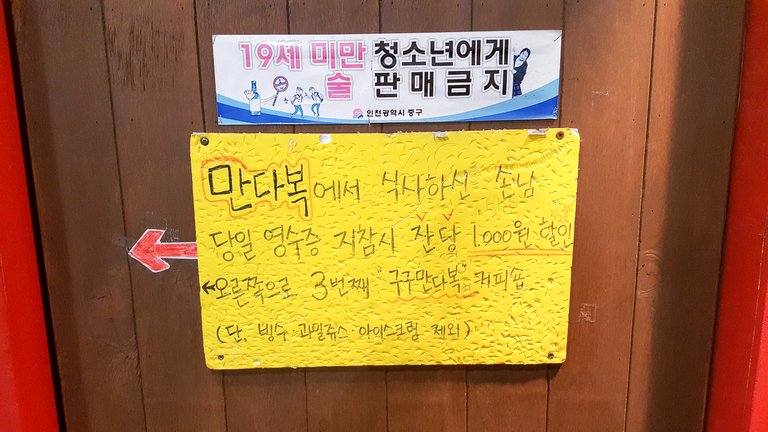 19세 미만 청소년에게
술 판매금지
인천광역시 중구
만다복에서 식사하신 손님
당일 영수증 지참시 잔당 1,000원 할인
←오른쪽으로 3번째 "구구만다복" 커피숍
(단, 빙수·과일쥬스·아이스크림 제외)